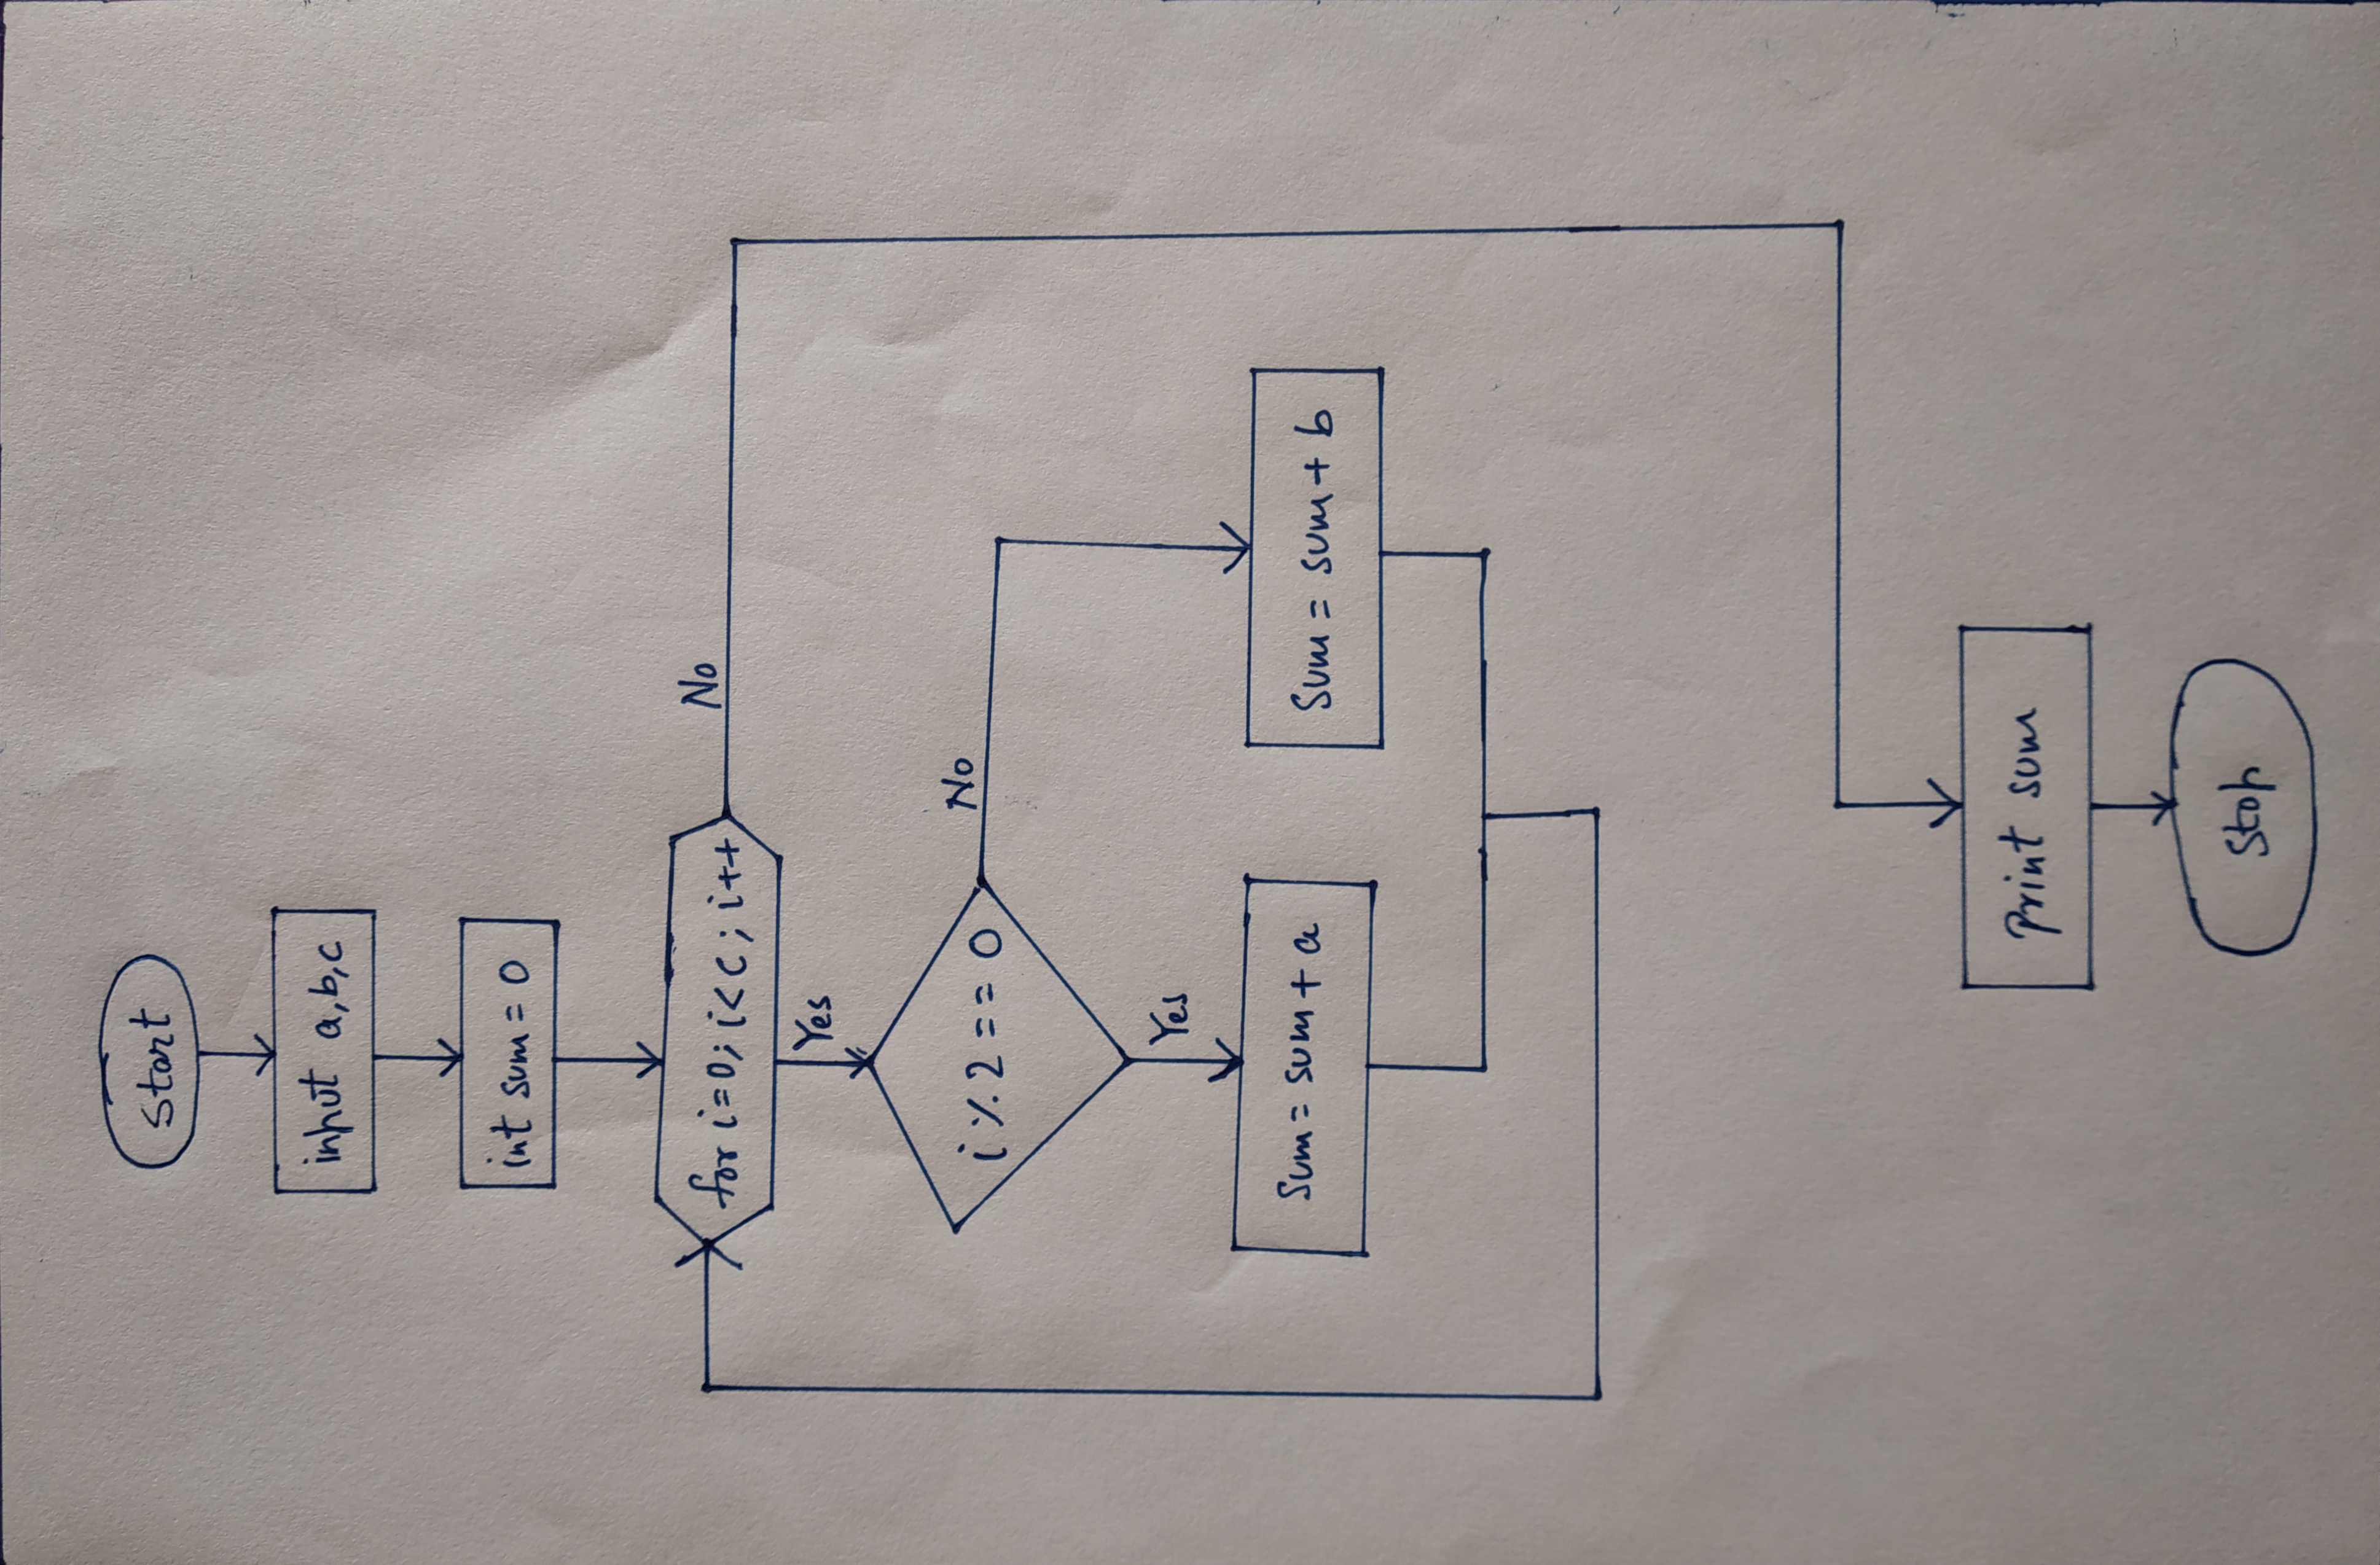 start
input a,b,c
int sum = 0
for i=0; i<c; i++
No
Yes
i % 2 == 0
No
Yes
Sum = sum + a
Sum = sum + b
Print sum
Stop